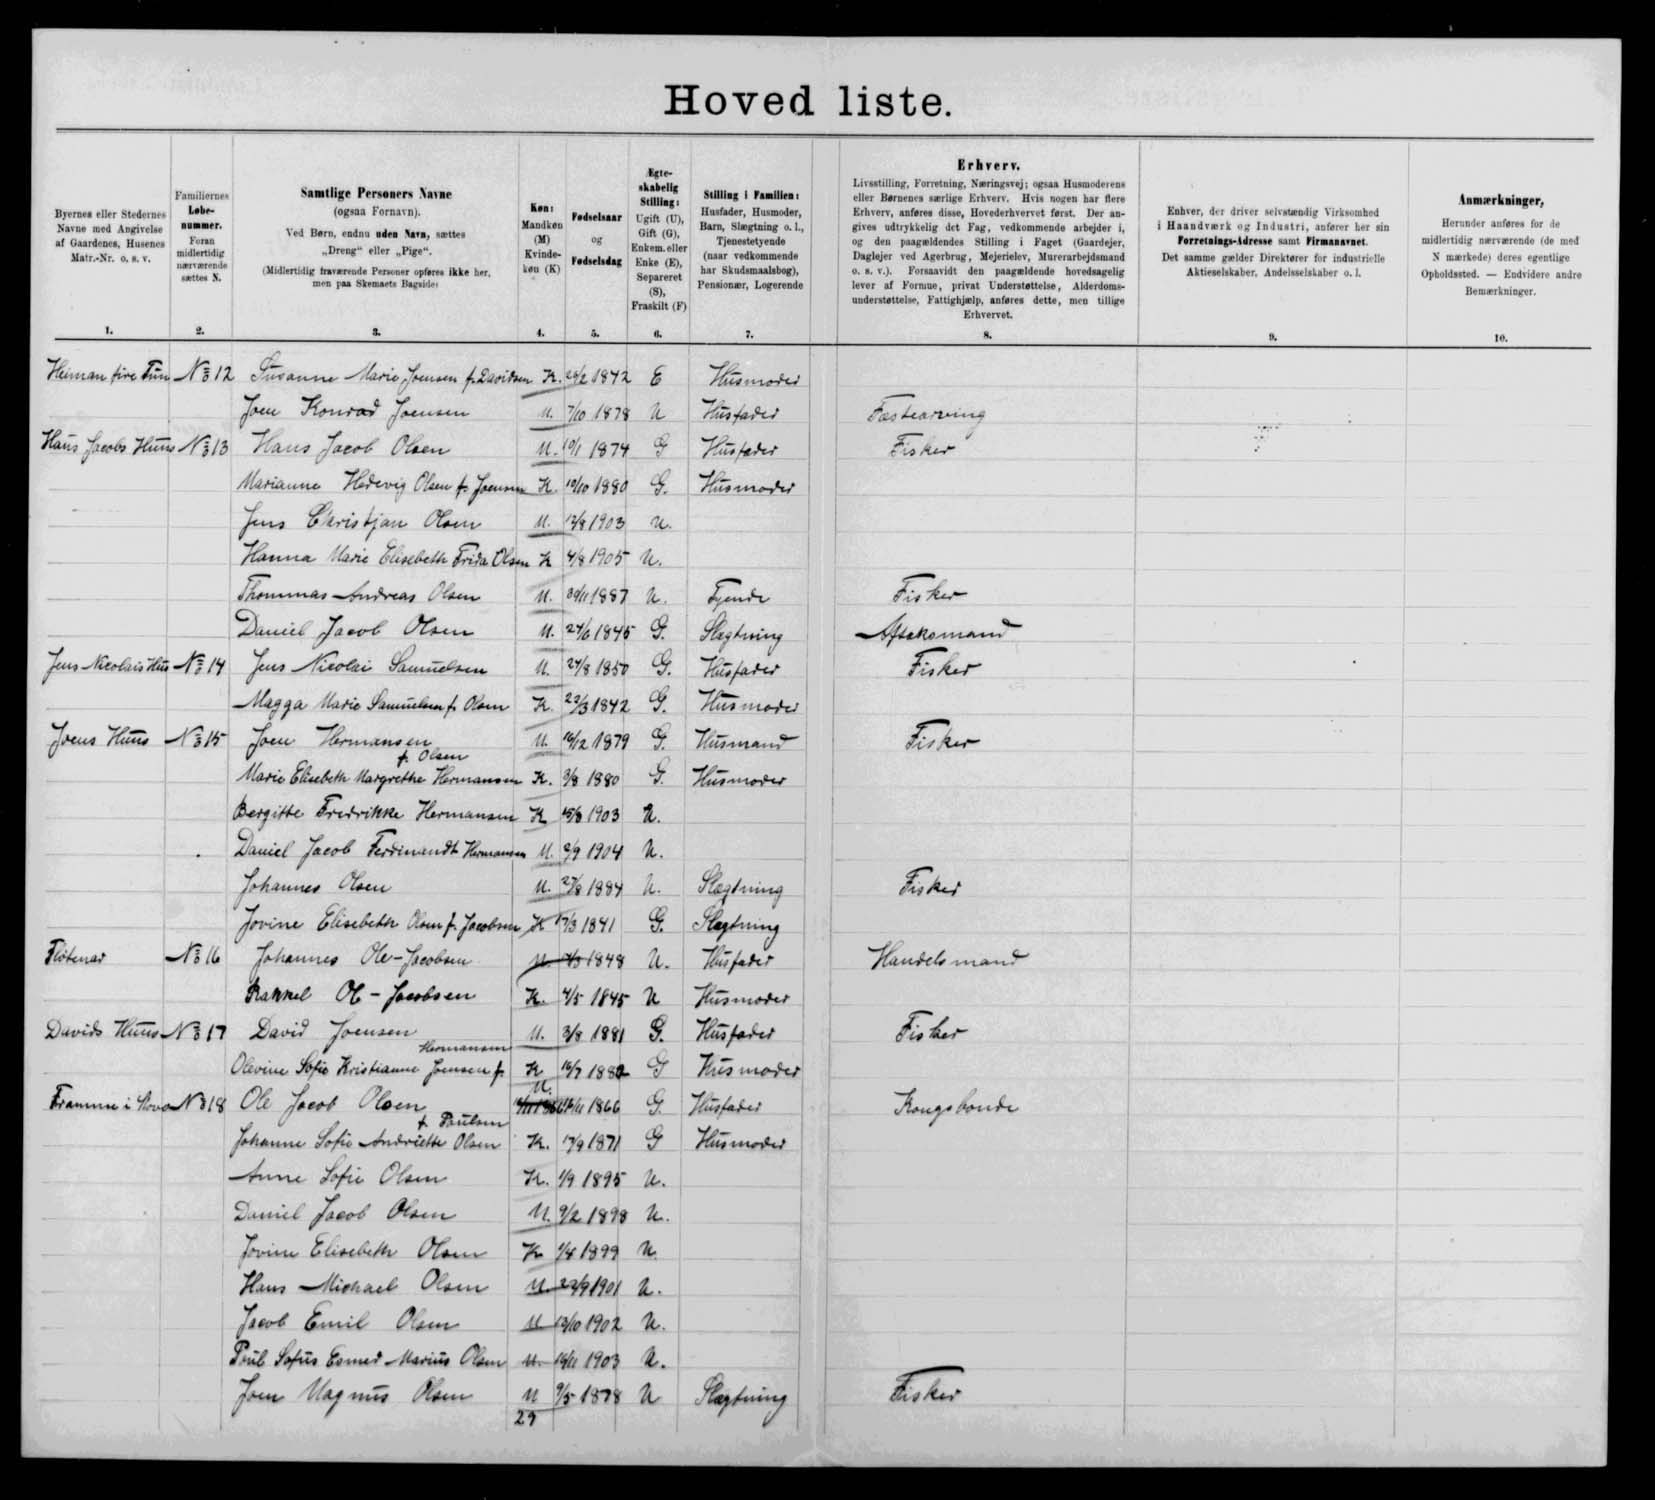 Hoved liste.
Byernes eller Stedernes
Navne med Angivelse
af Gaardenes, Husenes
Matr.-Nr. o. s. v.
1.
Familiernes
Løbe-
nummer.
Foran
midlertidig
nærværende
sættes N.
2.
Samtlige Personers Navne
(ogsaa Fornavn).
Ved Børn, endnu uden Navn, sættes
„Dreng“ eller „Pige“.
(Midlertidig fraværende Personer opføres ikke her,
men paa Skemaets Bagside)
3.
Køn:
Mandkøn
(M)
Kvinde-
køn (K)
4.
Fødselsaar
og
Fødselsdag
5.
Ægte-
skabelig
Stilling:
Ugift (U),
Gift (G),
Enkem. eller
Enke (E),
Separeret
(S),
Fraskilt (F)
6.
Stilling i Familien:
Husfader, Husmoder,
Barn, Slægtning o. l.,
Tjenestetyende
(naar vedkommende
har Skudsmaalsbog),
Pensionær, Logerende
7.
Erhverv.
Livsstilling, Forretning, Næringsvej; ogsaa Husmoderens
eller Børnenes særlige Erhverv. Hvis nogen har flere
Erhverv, anføres disse, Hovederhvervet først. Der an-
gives udtrykkelig det Fag, vedkommende arbejder i,
og den paagældendes Stilling i Faget (Gaardejer,
Daglejer ved Agerbrug, Mejerielev, Murerarbejdsmand
o. s. v.). Forsaavidt den paagældende hovedsagelig
lever af Formue, privat Understøttelse, Alderdoms-
understøttelse, Fattighjælp, anføres dette, men tillige
Erhvervet.
8.
Enhver, der driver selvstændig Virksomhed
i Haandværk og Industri, anfører her sin
Forretnings-Adresse samt Firmanavnet.
Det samme gælder Direktører for industrielle
Aktieselskaber, Andelsselskaber o. l.
9.
Anmærkninger,
Herunder anføres for de
midlertidig nærværende (de med
N mærkede) deres egentlige
Opholdssted. — Endvidere andre
Bemærkninger.
10.
Heiman fire Tun No 12 Susanne Marie Joensen f. Davidsen K. 28/2 1842 E Husmoder
Joen Konrad Joensen M. 7/10 1878 U Husfader Fæstearving
Hans Jacobs Huus No 13 Hans Jacob Olsen M. 10/1 1874 G Husfader Fisker
Marianne Hedevig Olsen f. Joensen K. 10/10 1880 G. Husmoder
Jens Christjan Olsen M. 12/8 1903 U.
Hanna Marie Elisebeth Frida Olsen K 4/8 1905 U.
Thommas Andreas Olsen M. 30/11 1887 U. Tyende Fisker
Daniel Jacob Olsen M. 24/6 1845 G. Slægtning Aftæksmand
Jens Nicolais Hus No 14 Jens Nicolai Samuelsen M. 24/8 1850 G. Husfader Fisker
Magga Marie Samuelsen f. Olsen K. 22/3 1842 G. Husmoder
Joens Huus No 15 Joen Hermansen M. 16/12 1879 G. Husmand Fisker
f. Olsen
Marie Elisebeth Margrethe Hermansen K. 3/8 1880 G. Husmoder
Bergitte Fredrikke Hermansen K 15/8 1903 U.
Daniel Jacob Ferdinandt Hermansen M. 2/9 1904 U.
Johannes Olsen M. 27/8 1884 U. Slægtning Fisker
Jovine Elisebeth Olsen f. Jacobsen K 17/3 1841 G. Slægtning
Flötenar No 16 Johannes Ole-Jacobsen M. 1848 U. Husfader Handelsmand
Rakkel Ol-Jacobsen K. 4/5 1845 U Husmoder
Davids Huus No 17 David Joensen M. 3/8 1881 G. Husfader Fisker
Hermansen
Olevine Sofie Kristianne Joensen f. K 16/7 1882 G Husmoder
Framme i Skovo No 18 Ole Jacob Olsen M. 16/11 1866 G. Husfader Kongsbonde
f. Poulsen
Johanne Sofie Andriette Olsen K. 17/9 1871 G Husmoder
Anne Sofie Olsen K. 1/9 1895 U.
Daniel Jacob Olsen M. 9/2 1898 U.
Jovine Elisebeth Olsen K 1/4 1899 U.
Hans Michael Olsen M. 22/9 1901 U.
Jacob Emil Olsen M 12/10 1902 U.
Poul Sofus Esmer Marius Olsen M 16/11 1903 U.
Joen Magnus Olsen M 9/5 1878 U Slægtning Fisker
29